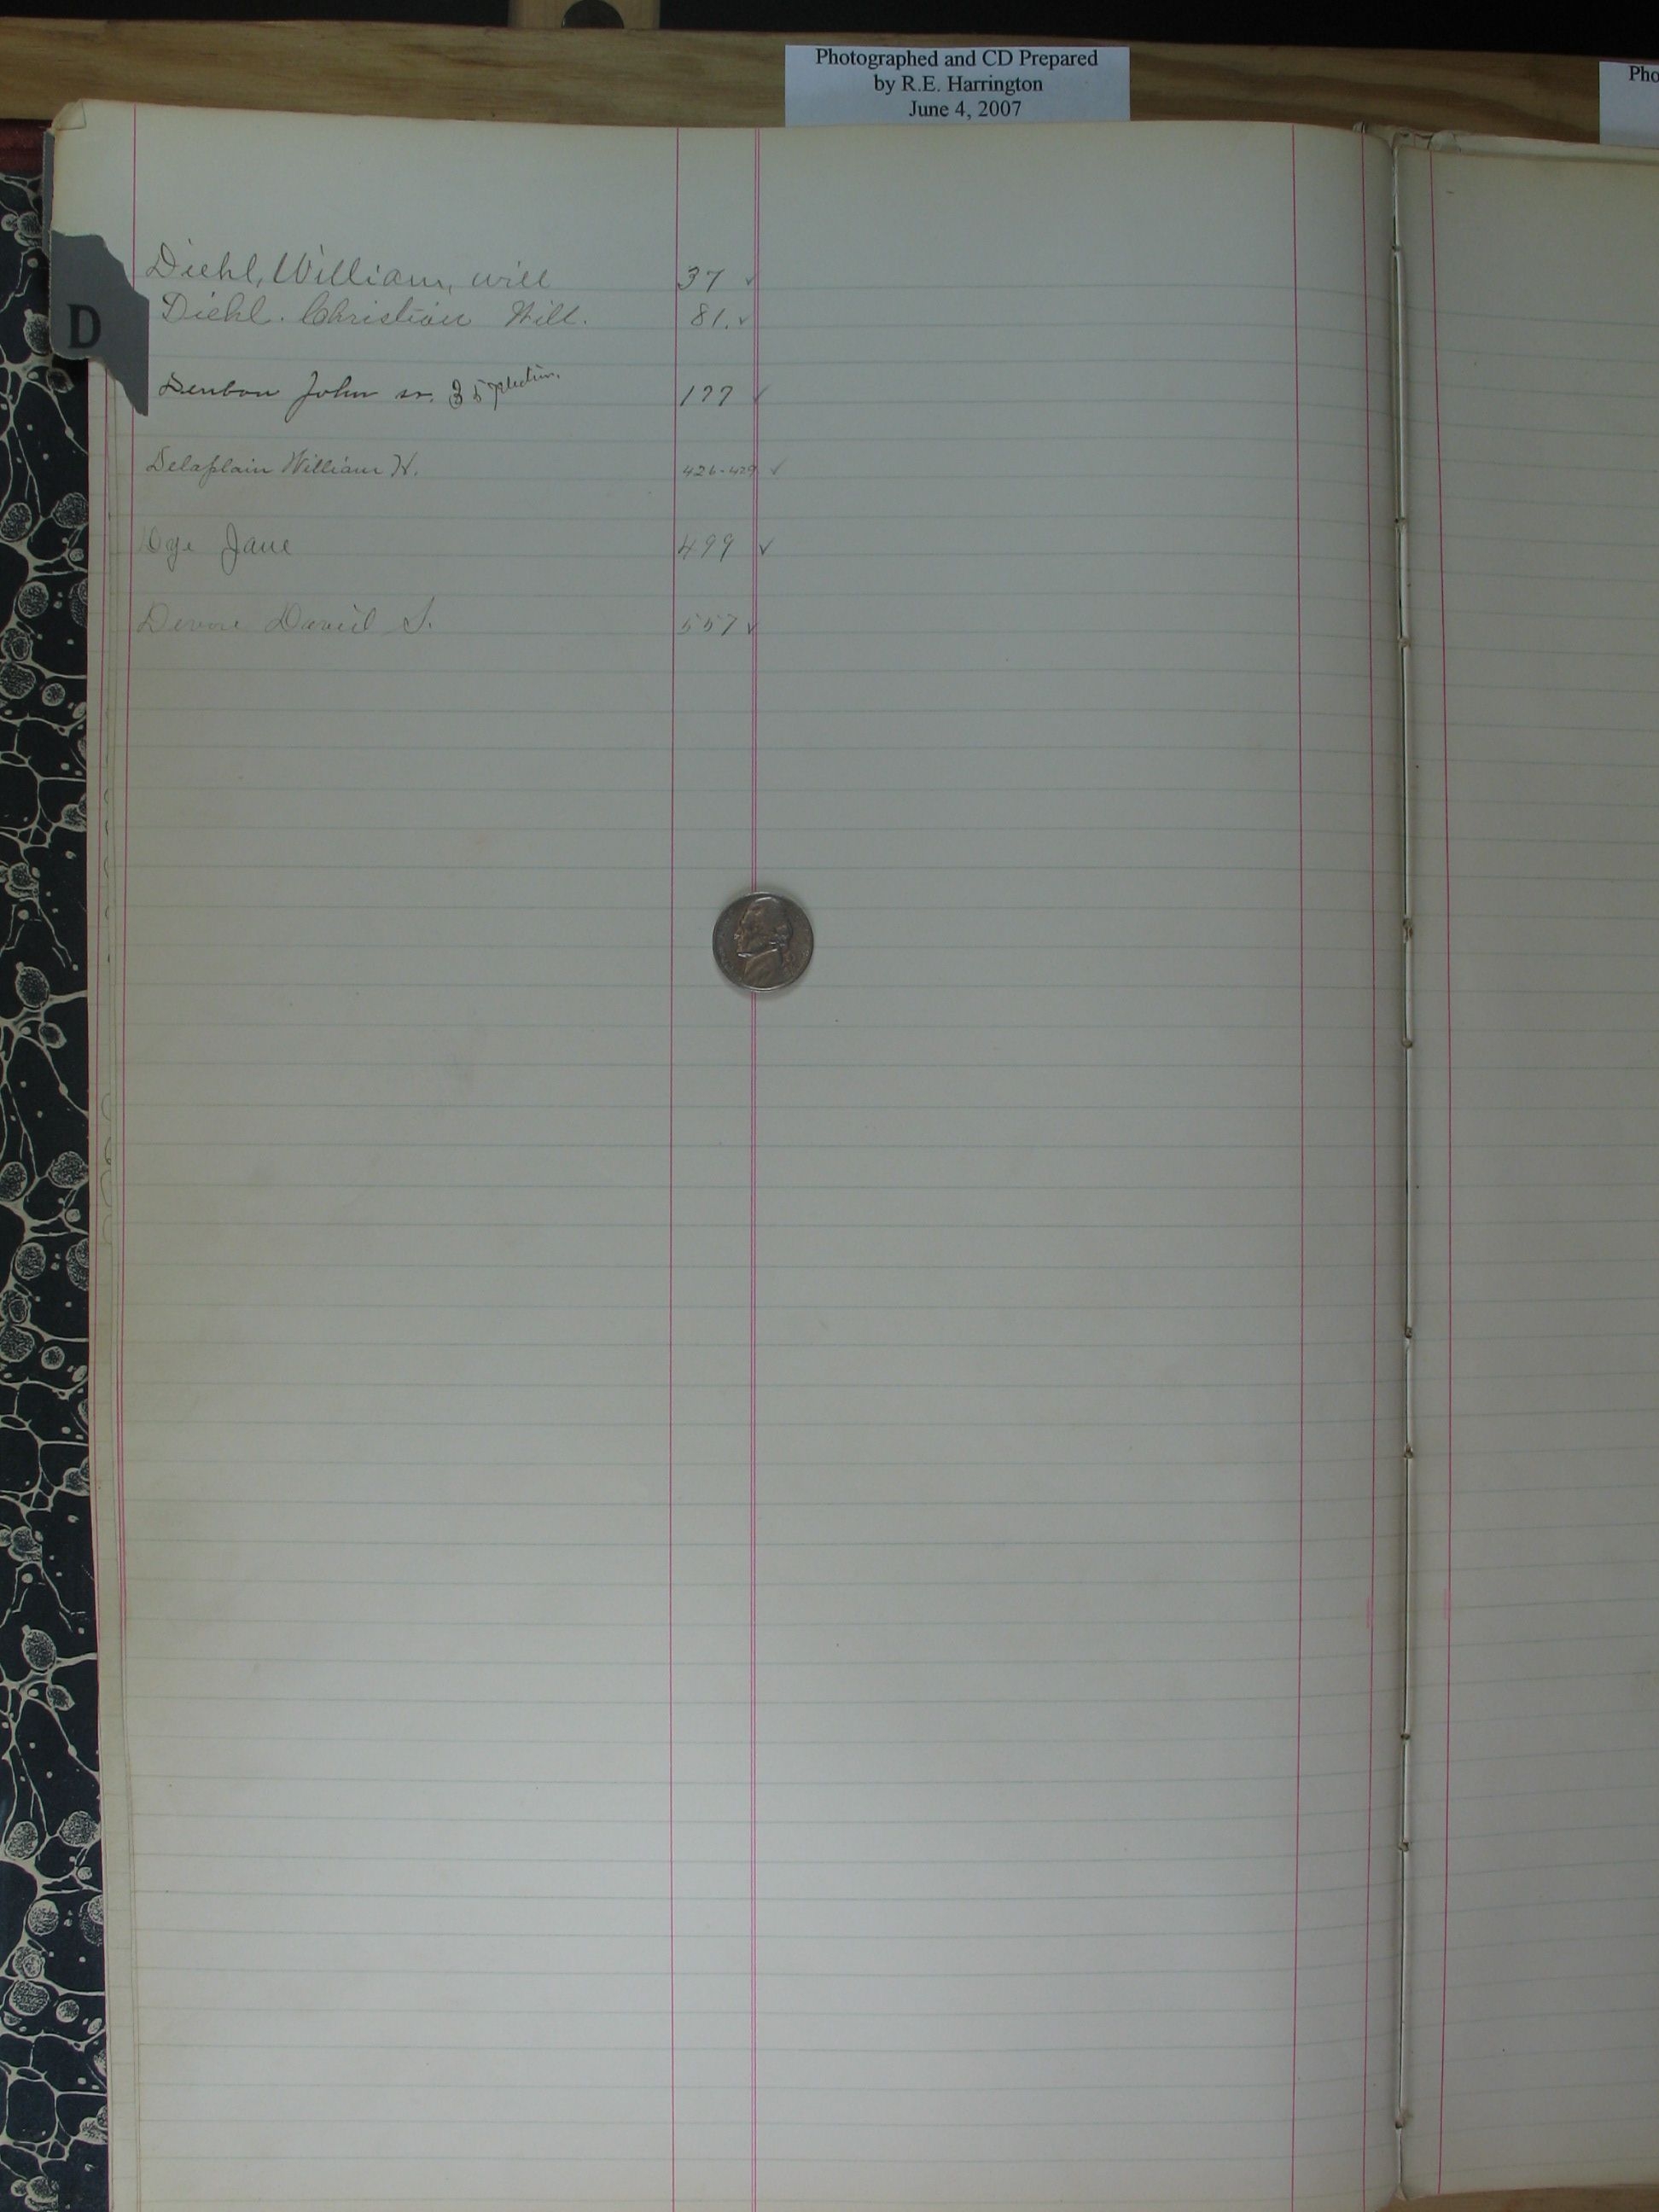 Photographed and CD Prepared
by R.E. Harrington
June 4, 2007
Pho
D
Diehl, William, will 37 ✓
Diehl. Christian Will. 81. ✓
Denbow John sr. 35 177 ✓
Delaplain William H. 426-429 ✓
Dye Jane 499 ✓
Devore David S. 557 ✓